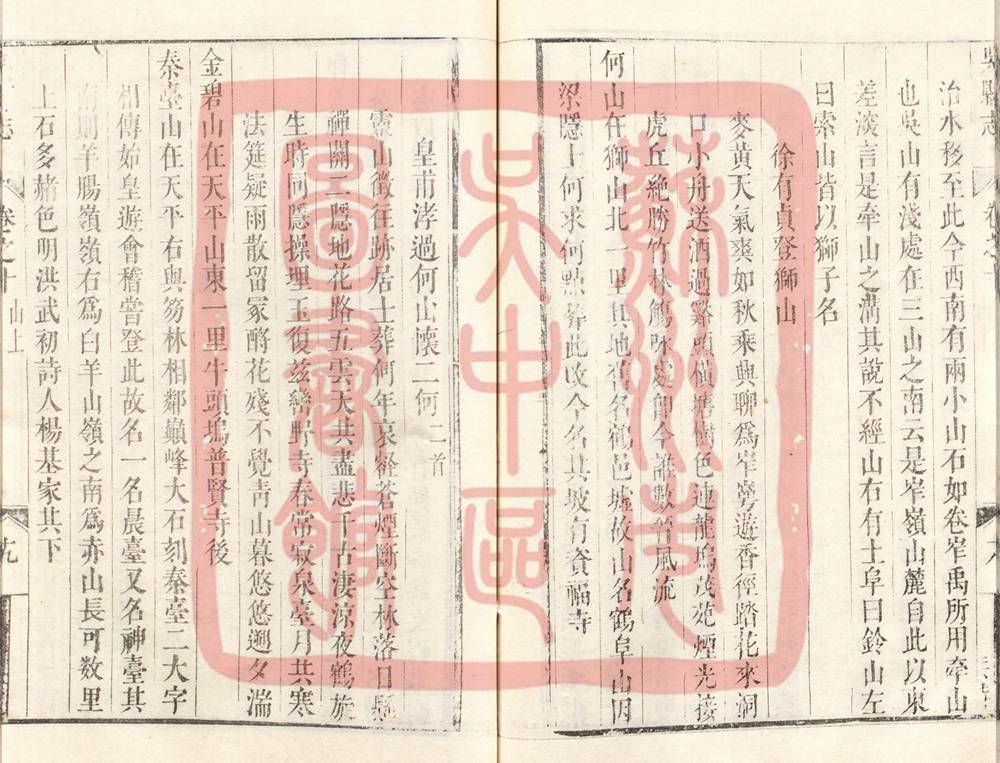 治水移至此今西南有兩小山石如卷笮禹所用牽山
也吳山有淺處在三山之南云是岸嶺山麓自此以東
差淡言是牽山之溝其說不經山右有土阜曰鈴山左
曰索山皆以獅子名
徐有貞登獅山
麥黃天氣爽如秋乘興聊為岸寧遊香徑踏花來洞
口小舟送酒過谿頭橫塘樹色連龍塢茂苑煙光接
虎丘絶勝竹林觴咏處即今誰數晉風流
何山在獅山北一里其地舊名鶴邑墟故山名鶴阜山因
梁隱士何求何點葬此改今名其坡有資福寺
皇甫涍過何山懷二何二首
靈山徵往跡居士葬何年哀壑蒼煙斷空林落日懸
禪關二隱地花路五雲天共盡悲千古淒涼夜鶴旋
生時同隱操埋玉復茲巒野寺春常寂泉臺月共寒
法筵疑雨散留冢酹花殘不覺青山暮悠悠遡夕湍
金碧山在天平山東一里牛頭塢普賢寺後
秦臺山在天平右與笏林相鄰巔峰大石刻秦臺二大字
相傳始皇遊會稽嘗登此故名一名晨臺又名神臺其
則羊腸嶺嶺右為白羊山嶺之南為赤山長可數里
上石多赭色明洪武初詩人楊基家其下
志
卷之十
山上
九
蘇州市
吳中區
圖書館